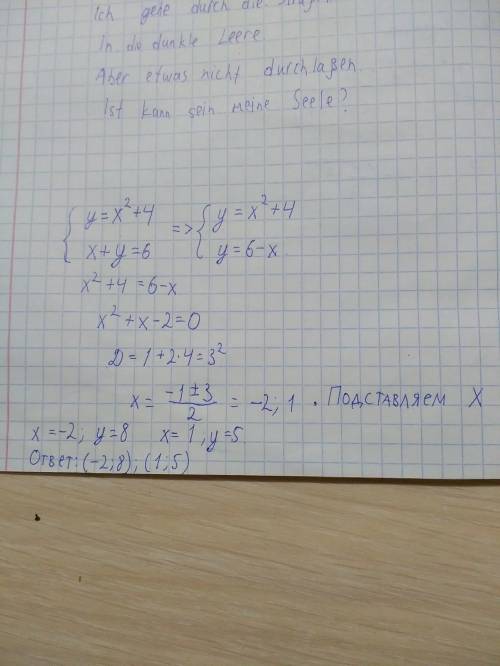 Ich gehe durch die
In die dunkle Leere
Aber etwas nicht durchlaßen
Ist kann sein meine Seele?
{ y=x²+4 => { y=x²+4
x+y=6 y=6-x
x²+4=6-x
x²+x-2=0
D=1+2·4=3²
x = (-1±3)/2 = -2; 1. Подставляем X
x=-2; y=8 x=1, y=5
Ответ: (-2;8); (1;5)